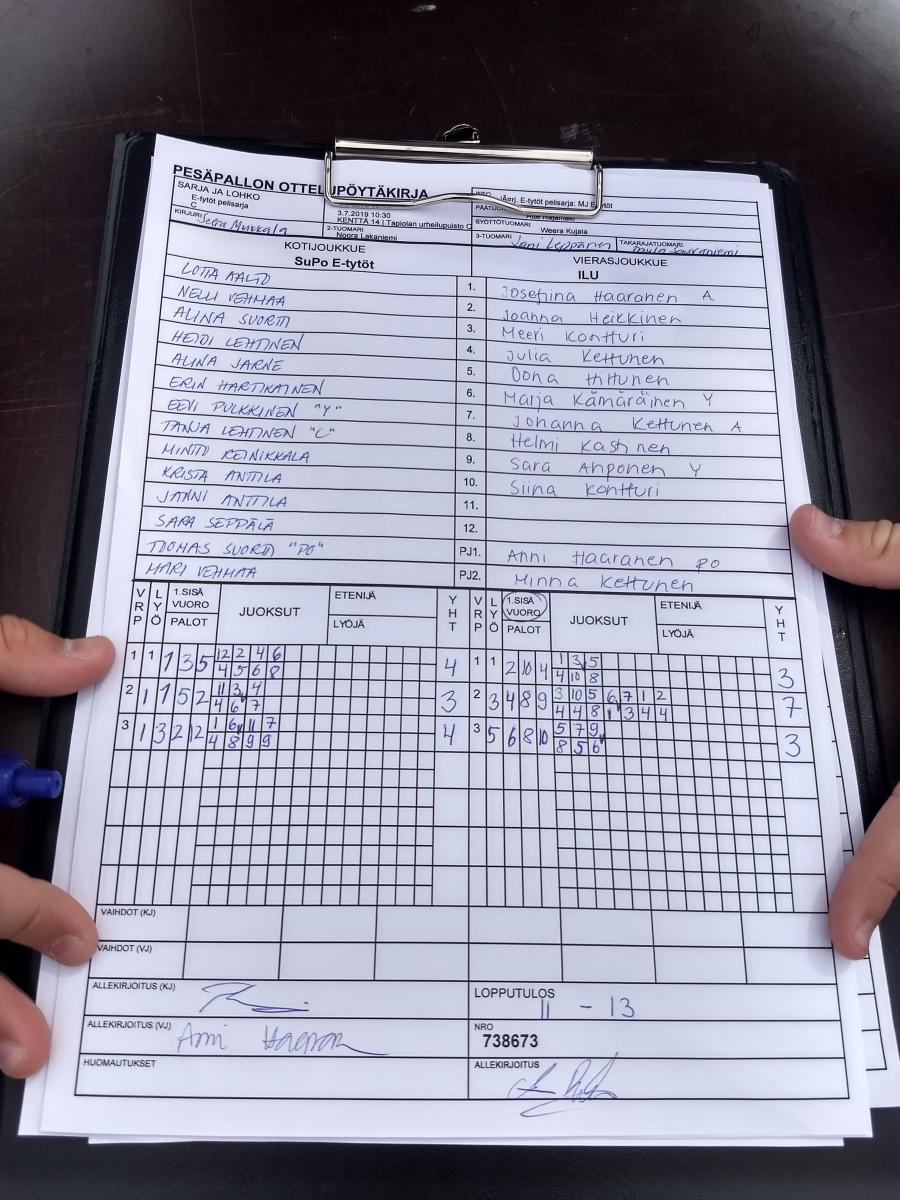 PESÄPALLON OTTELUPÖYTÄKIRJA
SARJA JA LOHKO
E-tytöt pelisarja
C
3.7.2019 10:30
KENTTÄ 14 | Tapiolan urheilupuisto C
Järj. E-tytöt pelisarja: MJ E-tytöt
KIRJURI Seera Mukkala
2-TUOMARI
Noora Lakaniemi
SYÖTTÖTUOMARI
Weera Kujala
3-TUOMARI Jani Leppänen
TAKARAJATUOMARI
KOTIJOUKKUE
SuPo E-tytöt
VIERASJOUKKUE
ILU
LOTTA AALTO 1. Josefiina Haaranen A
NELLI VEHMAA 2. Joanna Heikkinen
ALINA SUORTTI 3. Meeri Kontturi
HEIDI LEHTINEN 4. Julia Kettunen
ALINA JARNE 5. Oona Hiltunen
ERIN HARTIKAINEN 6. Marja Kämäräinen Y
EEVI PULKKINEN "Y" 7. Johanna Kettunen A
TANJA LEHTINEN "C" 8. Helmi
MINTTU REINIKKALA 9. Sara Ahponen Y
KRISTA ANTTILA 10. Siina Kontturi
JANNI ANTTILA 11.
SARA SEPPÄLÄ 12.
TUOMAS SUORTTI "PO" PJ1. Anni Haaranen PO
MARI VEHMAA PJ2. Minna Kettunen
VRP LYÖ 1.SISÄ VUORO PALOT JUOKSUT ETENIJÄ LYÖJÄ YHT VRP LYÖ 1.SISÄ VUORO PALOT JUOKSUT ETENIJÄ LYÖJÄ YHT
1 1 1 3 5 12 2 4 6 4 1 1 2 10 4 1 3 5 3
4 5 6 8 4 10 8
2 1 1 5 2 11 3 4 3 2 3 4 8 9 3 10 5 6 7 1 2 7
4 6 7 4 4 8 1 3 4 4
3 1 3 2 12 1 6 11 7 4 3 5 6 8 10 5 7 9 3
4 8 9 9 8 5 6
VAIHDOT (KJ)
VAIHDOT (VJ)
ALLEKIRJOITUS (KJ)
LOPPUTULOS
11 - 13
ALLEKIRJOITUS (VJ) Anni
NRO
738673
HUOMAUTUKSET
ALLEKIRJOITUS